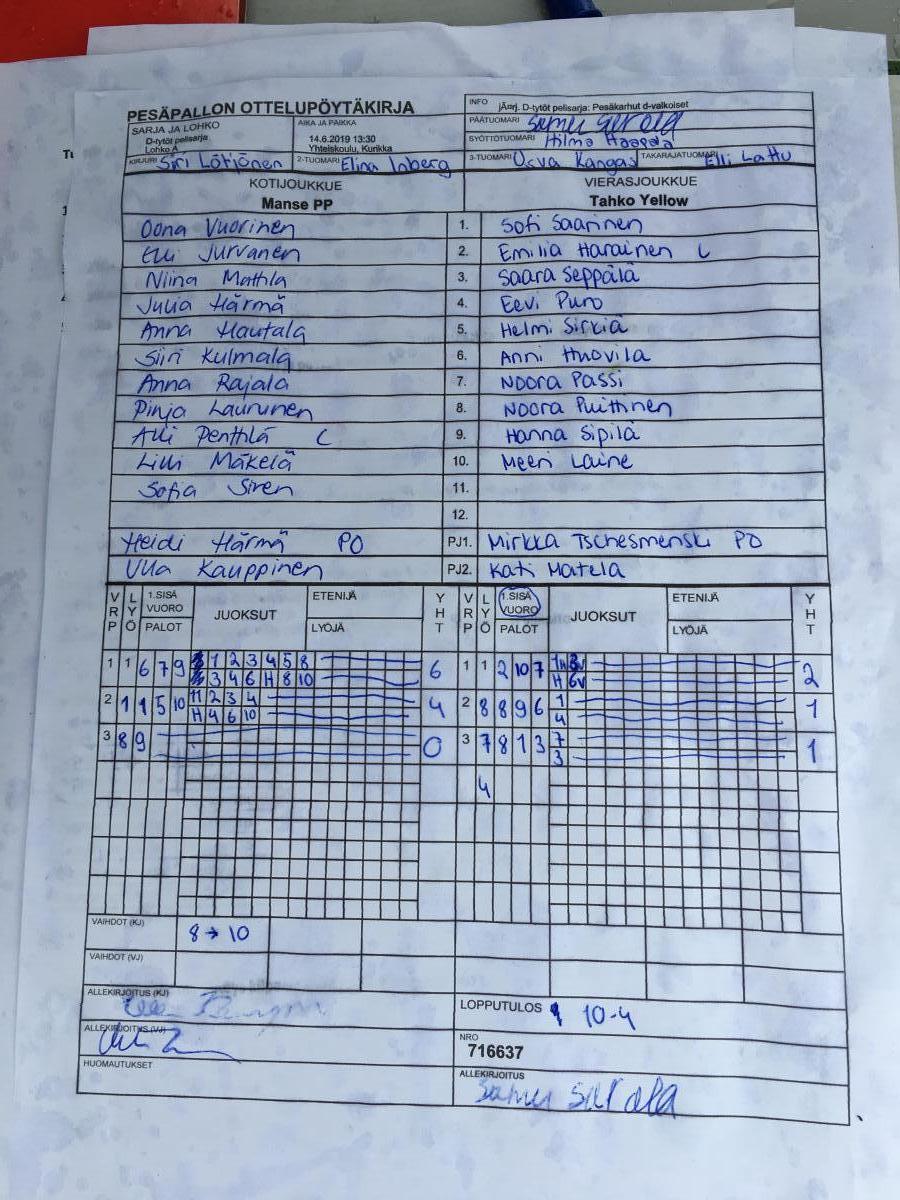 PESÄPALLON OTTELUPÖYTÄKIRJA
SARJA JA LOHKO
D-tytöt pelisarja
Lohko A
AIKA JA PAIKKA
14.6.2019 13:30
Yhteiskoulu, Kurikka
INFO jÄrrj. D-tytöt pelisarja: Pesäkarhut d-valkoiset
PÄÄTUOMARI
SYÖTTÖTUOMARI Hilma Haapala
KIRJURI Siri Lötjönen
2-TUOMARI Elina Inberg
3-TUOMARI Oosva Kangas
TAKARAJATUOMARI Elli Lattu
KOTIJOUKKUE VIERASJOUKKUE
Manse PP Tahko Yellow
Oona Vuorinen 1. Sofi Saarinen
Elli Jurvanen 2. Emilia Harainen C
Niina Mattila 3. Saara Seppälä
Julia Härmä 4. Eevi Puro
Anna Hautala 5. Helmi Sirkiä
Siiri Kulmala 6. Anni Huovila
Anna Rajala 7. Noora Passi
Pinja Laurunen 8. Noora Puittinen
Alli Penttilä C 9. Hanna Sipilä
Lilli Mäkelä 10. Meeri Laine
Sofia Siren 11.
12.
Heidi Härmä PO PJ1. Mirkka Tschesmenski PO
Ulla Kauppinen PJ2. Kati Matela
VRP LYÖ 1.SISÄ VUORO PALOT JUOKSUT ETENIJÄ LYÖJÄ YHT VRP LYÖ 1.SISÄ VUORO PALOT JUOKSUT ETENIJÄ LYÖJÄ YHT
1 1 6 7 9 1 2 3 4 5 8 6 1 1 2 10 7 2
3 4 6 H 8 10 H 6v
2 1 1 5 10 11 2 3 4 4 2 8 8 9 6 1 1
H 4 6 10 4
3 8 9 0 3 7 8 1 3 7 1
3
4
VAIHDOT (KJ) 8 → 10
VAIHDOT (VJ)
ALLEKIRJOITUS (KJ)
LOPPUTULOS 10-4
ALLEKIRJOITUS (VJ)
NRO
716637
HUOMAUTUKSET
ALLEKIRJOITUS